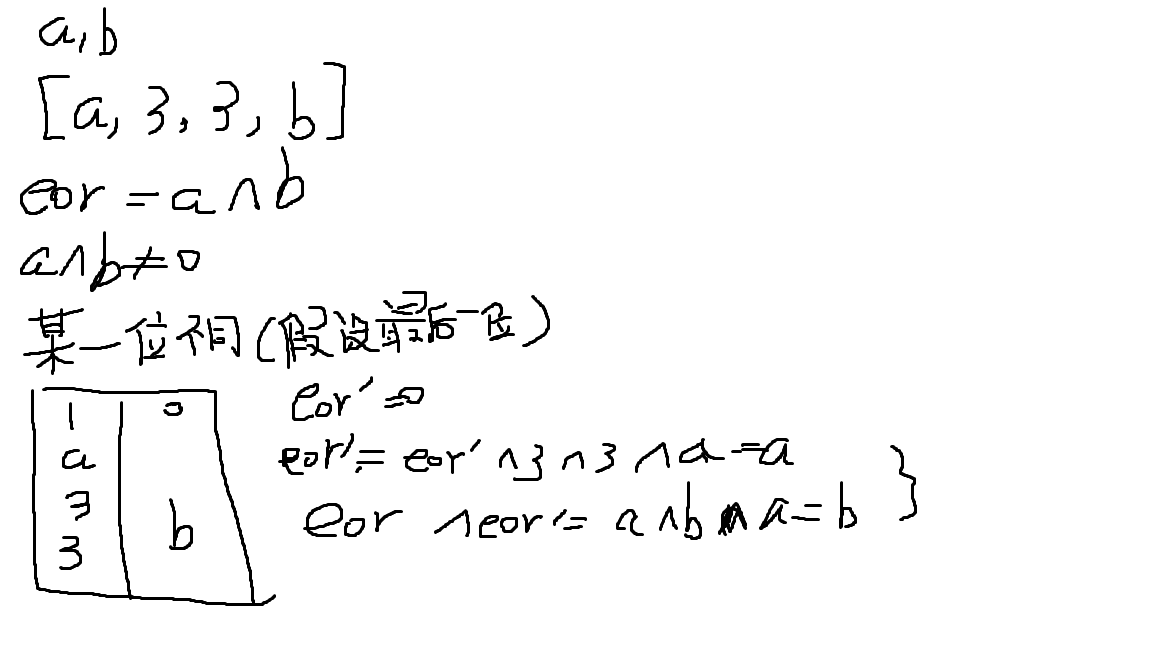 a,b
[a, 3, 3, b]
eor = a ∧ b
a∧b≠0
某一位不同(假设最后一位)
1 0
a
3
3
b
eor'=0
eor'= eor' ∧3 ∧3 ∧a=a
eor ∧eor'= a∧b∧a=b
}